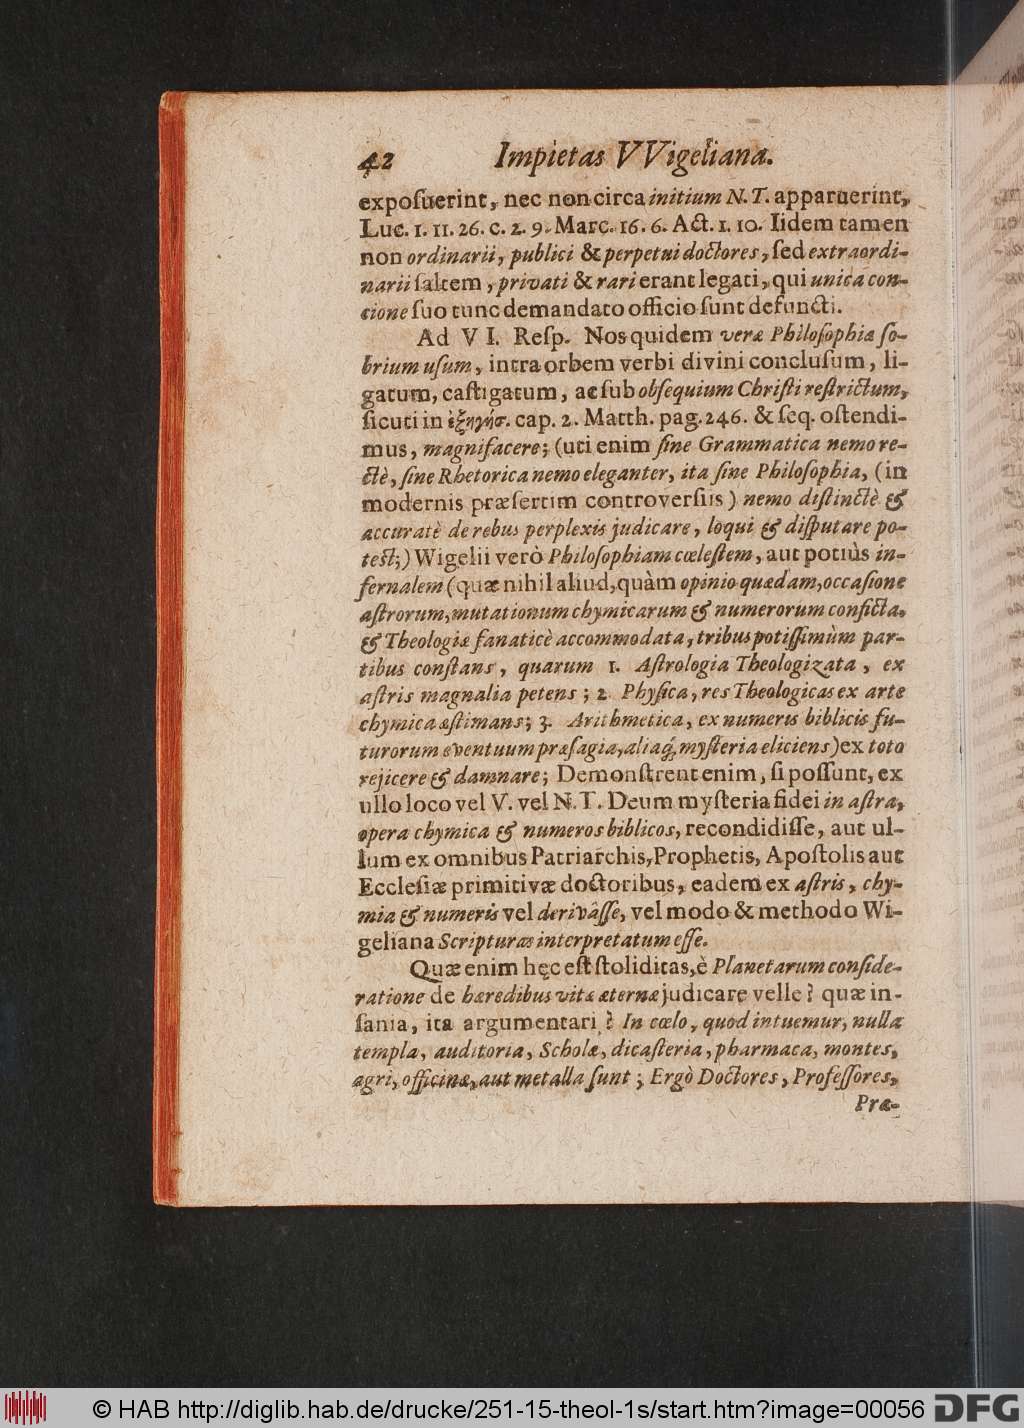 42 Impietas VVigeliana.
exposuerint, nec non circa initium N. T. apparuerint,
Luc. 1. 11. 26. c. 2. 9. Marc. 16. 6. Act. 1. 10. Iidem tamen
non ordinarii, publici & perpetui doctores, sed extraordi-
narii saltem, privati & rari erant legati, qui unica con-
cione suo tunc demandato officio sunt defuncti.
Ad VI. Resp. Nos quidem veræ Philosophiæ so-
brium usum, intra orbem verbi divini conclusum, li-
gatum, castigatum, ac sub obsequium Christi restrictum,
sicuti in ἐξηγήσ. cap. 2. Matth. pag. 246. & seq. ostendi-
mus, magnifacere; (uti enim sine Grammatica nemo re-
ctè, sine Rhetorica nemo eleganter, ita sine Philosophia, (in
modernis præsertim controversiis) nemo distinctè &
accuratè de rebus perplexis judicare, loqui & disputare po-
test;) Wigelii verò Philosophiam cœlestem, aut potiùs in-
fernalem (quæ nihil aliud, quàm opinio quædam, occasione
astrorum, mutationum chymicarum & numerorum conficta,
& Theologiæ fanaticè accommodata, tribus potissimùm par-
tibus constans, quarum 1. Astrologia Theologizata, ex
astris magnalia petens; 2. Physica, res Theologicas ex arte
chymica æstimans; 3. Arithmetica, ex numeris biblicis fu-
turorum eventuum præsagia, aliaq; mysteria eliciens) ex toto
rejicere & damnare; Demonstrent enim, si possunt, ex
ullo loco vel V. vel N. T. Deum mysteria fidei in astra,
opera chymica & numeros biblicos, recondidisse, aut ul-
lum ex omnibus Patriarchis, Prophetis, Apostolis aut
Ecclesiæ primitivæ doctoribus, eadem ex astris, chy-
mia & numeris vel derivâsse, vel modo & methodo Wi-
geliana Scripturas interpretatum esse.
Quæ enim hęc est stoliditas, è Planetarum conside-
ratione de hæredibus vitæ æternæ judicare velle? quæ in-
sania, ita argumentari? In cœlo, quod intuemur, nulla
templa, auditoria, Scholæ, dicasteria, pharmaca, montes,
agri, officinæ, aut metalla sunt; Ergò Doctores, Professores,
Præ-
© HAB http://diglib.hab.de/drucke/251-15-theol-1s/start.htm?image=00056 DFG